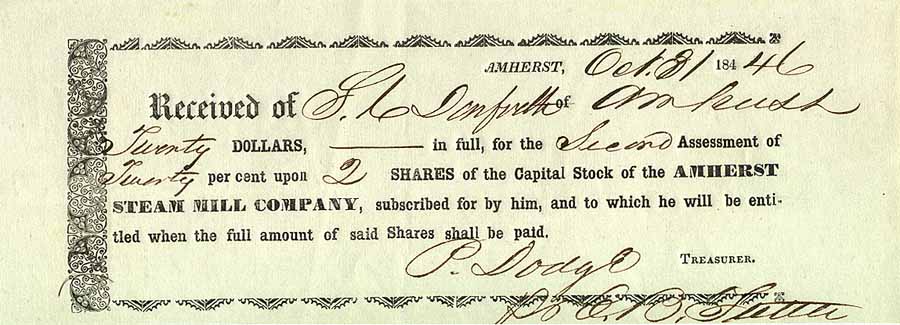 AMHERST, Oct. 31 184 46
Received of S. C Danforth of Amherst
Twenty DOLLARS, in full, for the Second Assessment of
Twenty per cent upon 2 SHARES of the Capital Stock of the AMHERST
STEAM MILL COMPANY, subscribed for by him, and to which he will be enti-
tled when the full amount of said Shares shall be paid.
P. Dodge TREASURER.
E. B.